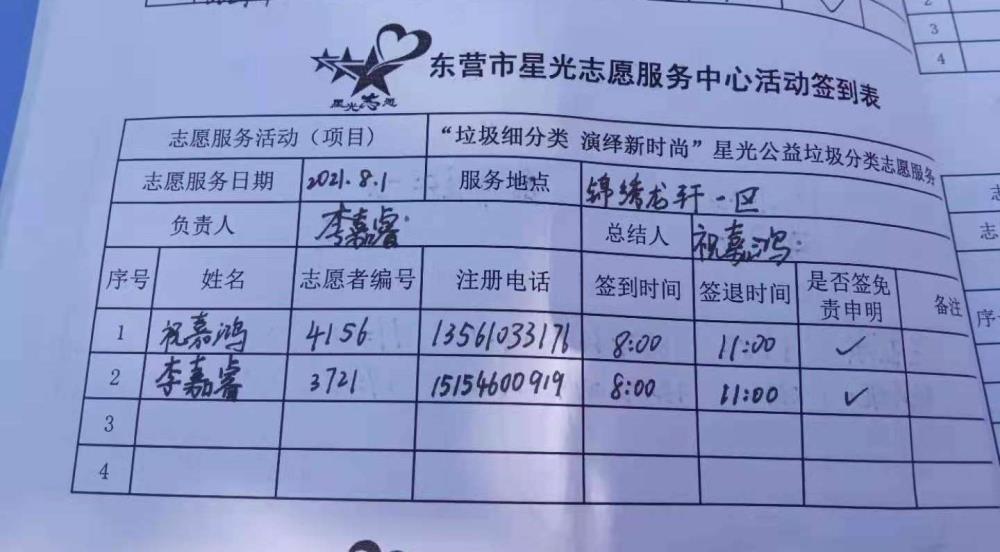 星光志愿
东营市星光志愿服务中心活动签到表
志愿服务活动（项目） “垃圾细分类 演绎新时尚”星光公益垃圾分类志愿服务
志愿服务日期 2021.8.1 服务地点 锦绣龙轩一区
负责人 李嘉睿 总结人 祝嘉鸿
序号 姓名 志愿者编号 注册电话 签到时间 签退时间 是否签免责申明 备注
1 祝嘉鸿 4156 13561033171 8:00 11:00 ✓
2 李嘉睿 3721 15154600919 8:00 11:00 ✓
3
4
2
3
4
志
序号